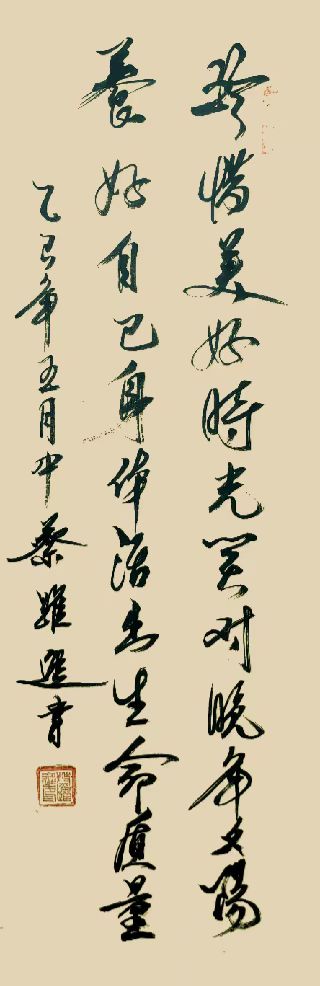 珍惜美好時光笑对晚年夕陽
養好自己身体活出生命质量
乙巳年五月中蔡雖選书